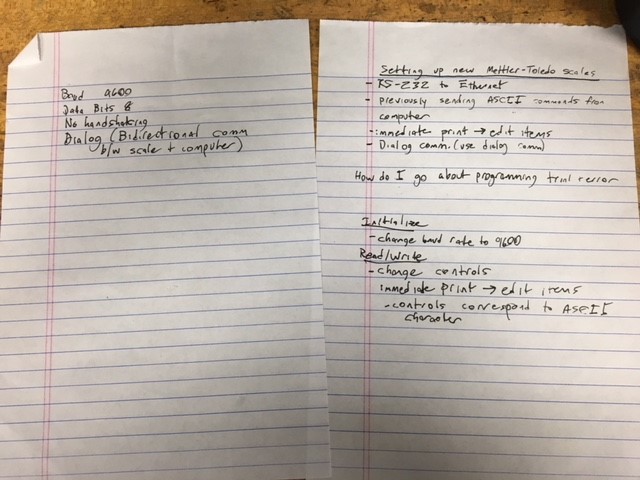 Baud 9600
Data Bits 8
No handshaking
Dialog (Bidirectional comm
b/w scale + computer)
Setting up new Mettler-Toledo scales
- RS-232 to Ethernet
- previously sending ASCII commands from
computer
- immediate print → edit items
- Dialog comm. (use dialog comm)
How do I go about programming trial + error
Initialize
- change baud rate to 9600
Read/Write
- change controls
immediate print → edit items
- controls correspond to ASCII
character